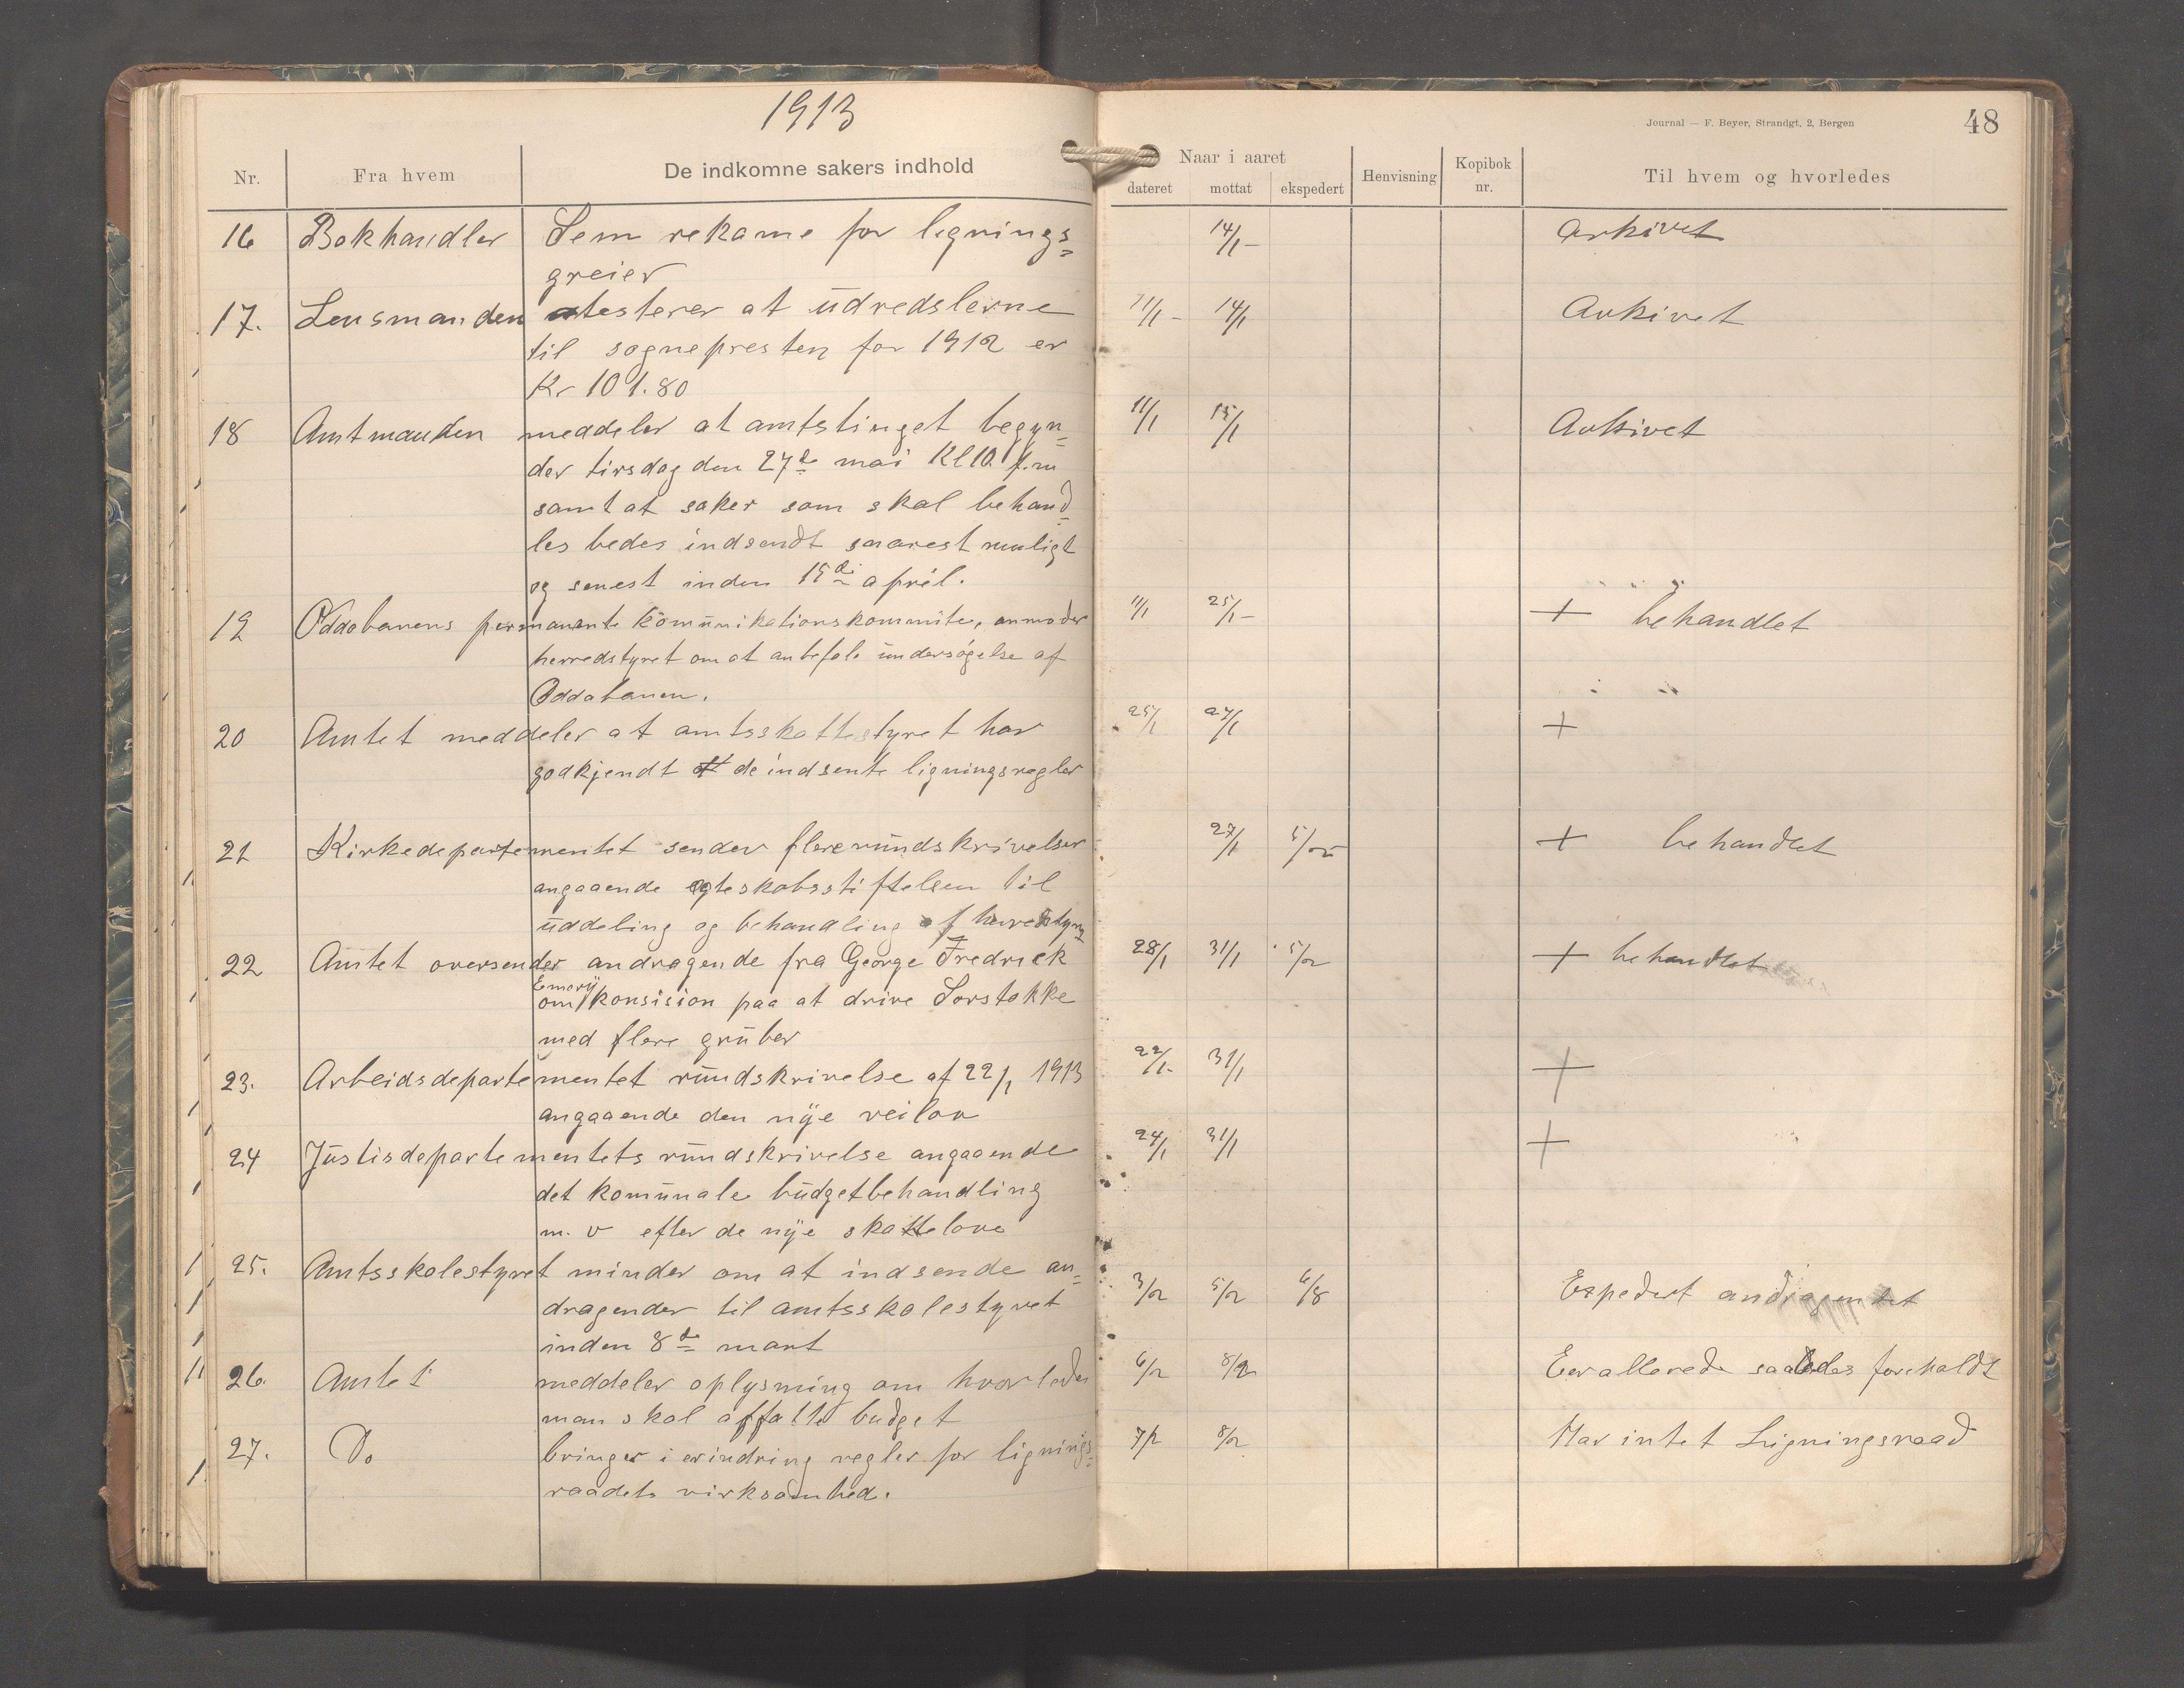 1913
Journal — F. Beyer, Strandgt. 2, Bergen
48
Nr. Fra hvem De indkomne sakers indhold
Naar i aaret
dateret mottat ekspedert Henvisning Kopibok nr. Til hvem og hvorledes
16 Bokhandler Sem rekame for lignings= 14/1- Arkivet
greier
17. Lensmanden atesterer at udredslerne 11/1- 14/1 Arkivet
til sognepresten for 1912 er
Kr 101.80
18 Amtmanden meddeler at amtstinget begyn= 11/1 15/1 Arkivet
der tirsdag den 27de mai Kl 10 f.m
samt at saker som skal behand=
les bedes indsendt snarest muligt
og senest inden 15de april.
19 Oddabanens permanante komunikationskommite, anmoder 11/1 25/1- + behandlet
herredstyret om at anbefale undersøgelse af
Oddabanen.
20 Amtet meddeler at amtsskattestyret har 25/1 27/1 +
godkjendt de indsente ligningsregler
21 Kirkedepartementet sender flere rundskrivelser 27/1 5/2 + behandlet
angaaende egteskabsstiftelsen til
uddeling og behandling af herredstyre
22 Amtet oversender andragende fra George Fredrick 28/1 31/1 5/2 + behandlet
Emery
om konsision paa at drive Sorstokke
med flere gruber
23. Arbeidsdepartementet rundskrivelse af 22/1 1913 22/1- 31/1 +
angaaende den nye veilov
24 Justisdepartementets rundskrivelse angaaende 24/1 31/1 +
det komunale budgetbehandling
m. v efter de nye skattelove
25. Amtsskolestyret minder om at indsende an= 3/2 5/2 6/8 Expedert andragendet
dragender til amtsskolestyret
inden 8de mart
26. Amtet meddeler oplysning om hvorledes 6/2 8/2 Er allerede saaledes forholdt
man skal affatte budget
27. Do bringer i erindring regler for lignings= 7/2 8/2 Har intet Ligningsraad
raadets virksomhed.